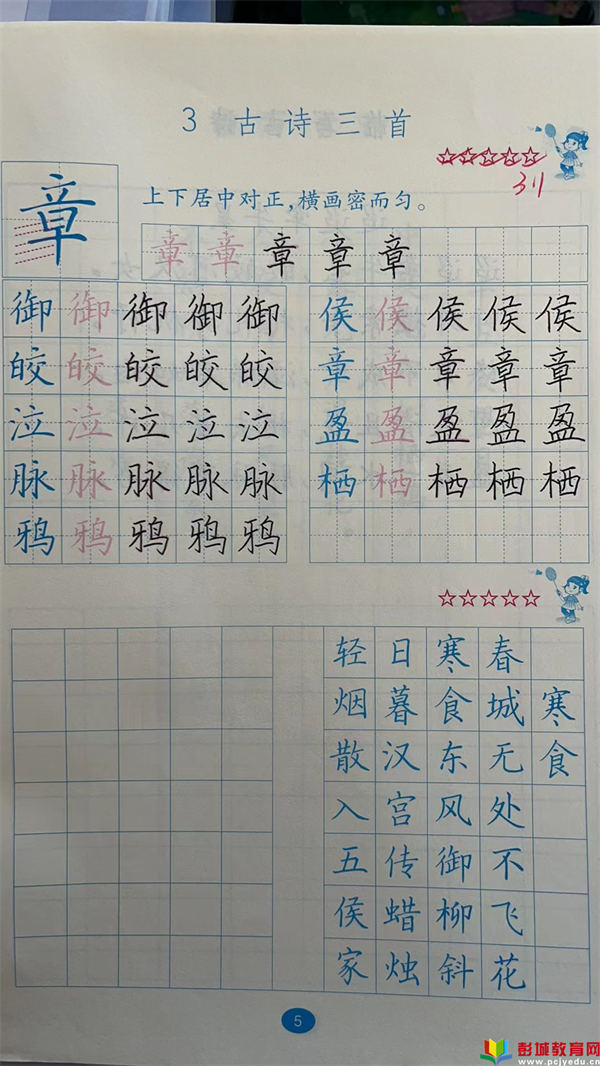 3 古诗三首
上下居中对正，横画密而匀。
章
章 章 章 章 章
御 御 御 御 御 侯 侯 侯 侯 侯
皎 皎 皎 皎 皎 章 章 章 章 章
泣 泣 泣 泣 泣 盈 盈 盈 盈 盈
脉 脉 脉 脉 脉 栖 栖 栖 栖 栖
鸦 鸦 鸦 鸦 鸦
寒食
春城无处不飞花
寒食东风御柳斜
日暮汉宫传蜡烛
轻烟散入五侯家
5
彭城教育网
www.pcjyedu.cn